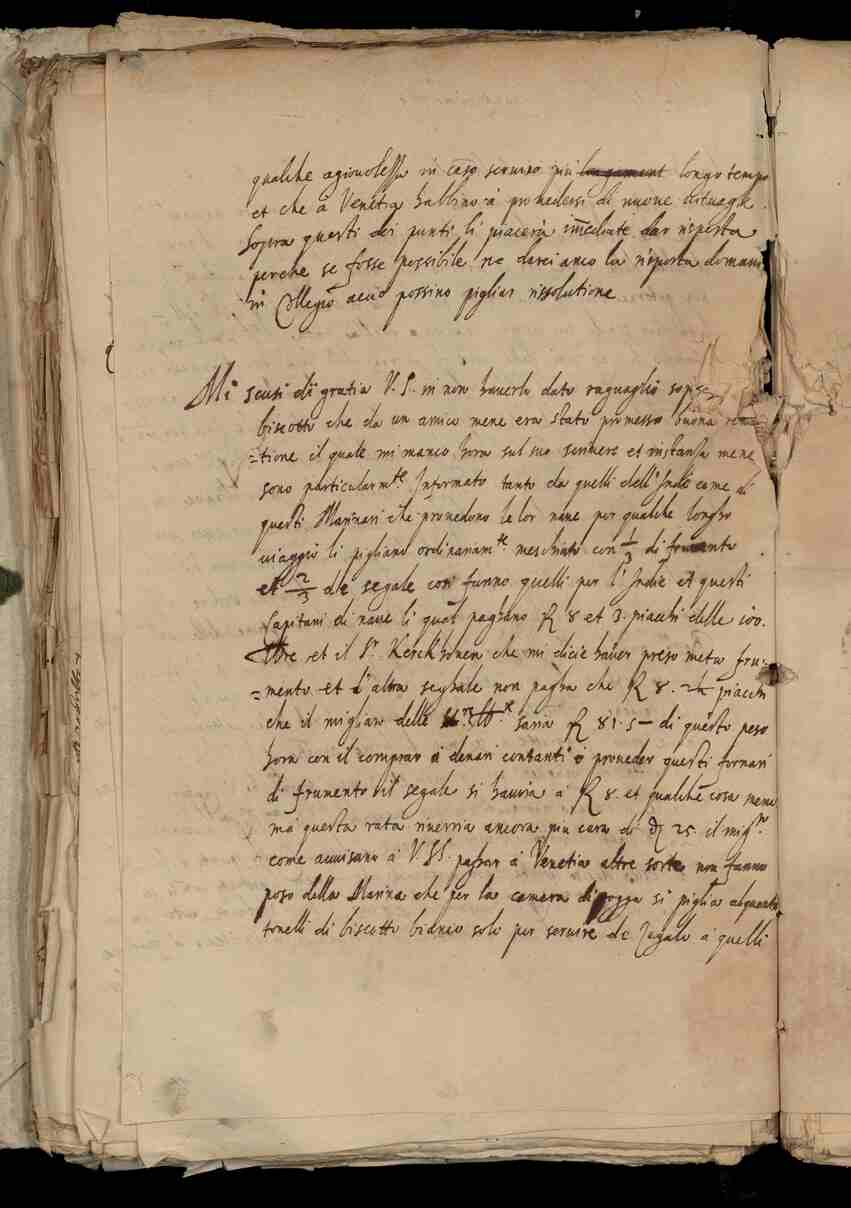 qualche agiovolessa in caso serviro piu longament longo tempo
et che a Venetia habbino à provedersi di nuove vituaglie.
Sopra questi doi punti li piacerà im̃ediate dar risposta
perche se fosse possibile ne darei anco la risposta domani
in Collegio acciò possino pigliar rissolutione
Mi scusi di gratia V.S. in non haverlo dato raguaglio sopra
biscotto che da un amico mene era stato promesso buona
=tione il quale mi manco hora sul suo scrivere et instansa mene
sono particularm.te Informato tanto da quelli dell'Indie come di
questi Marinari che provedono le lor nave per qualche longho
viaggio li pigliano ordinariam.te meschiato con 1/3 di frumento
et 2/3 de segale cosi fanno quelli per l'Indie et questi
Capitani di nave li quali paghano R 8 et 3. piachi delle 100.
libre et il S.r Kerckhoven che mi dicie haver preso metà fru=
=mento et l'altra seghale non pagha che R 8. 2½ piachi
che il migliar delle saria R 81.5— di questo peso
hora con il comprar à denari contanti ò proveder questi fornari
di frumento il segale si havria à R 8. et qualche cosa meno
mà questa rata riverria ancora piu cara di D 25. il mig.ro
come avvisano à V.SS. passar à Venetia altre sorte non fanno
poso della Marina che per la camera di poppa si piglia alquanti
tonelli di biscotto biancho solo per servire de regalo à quelli